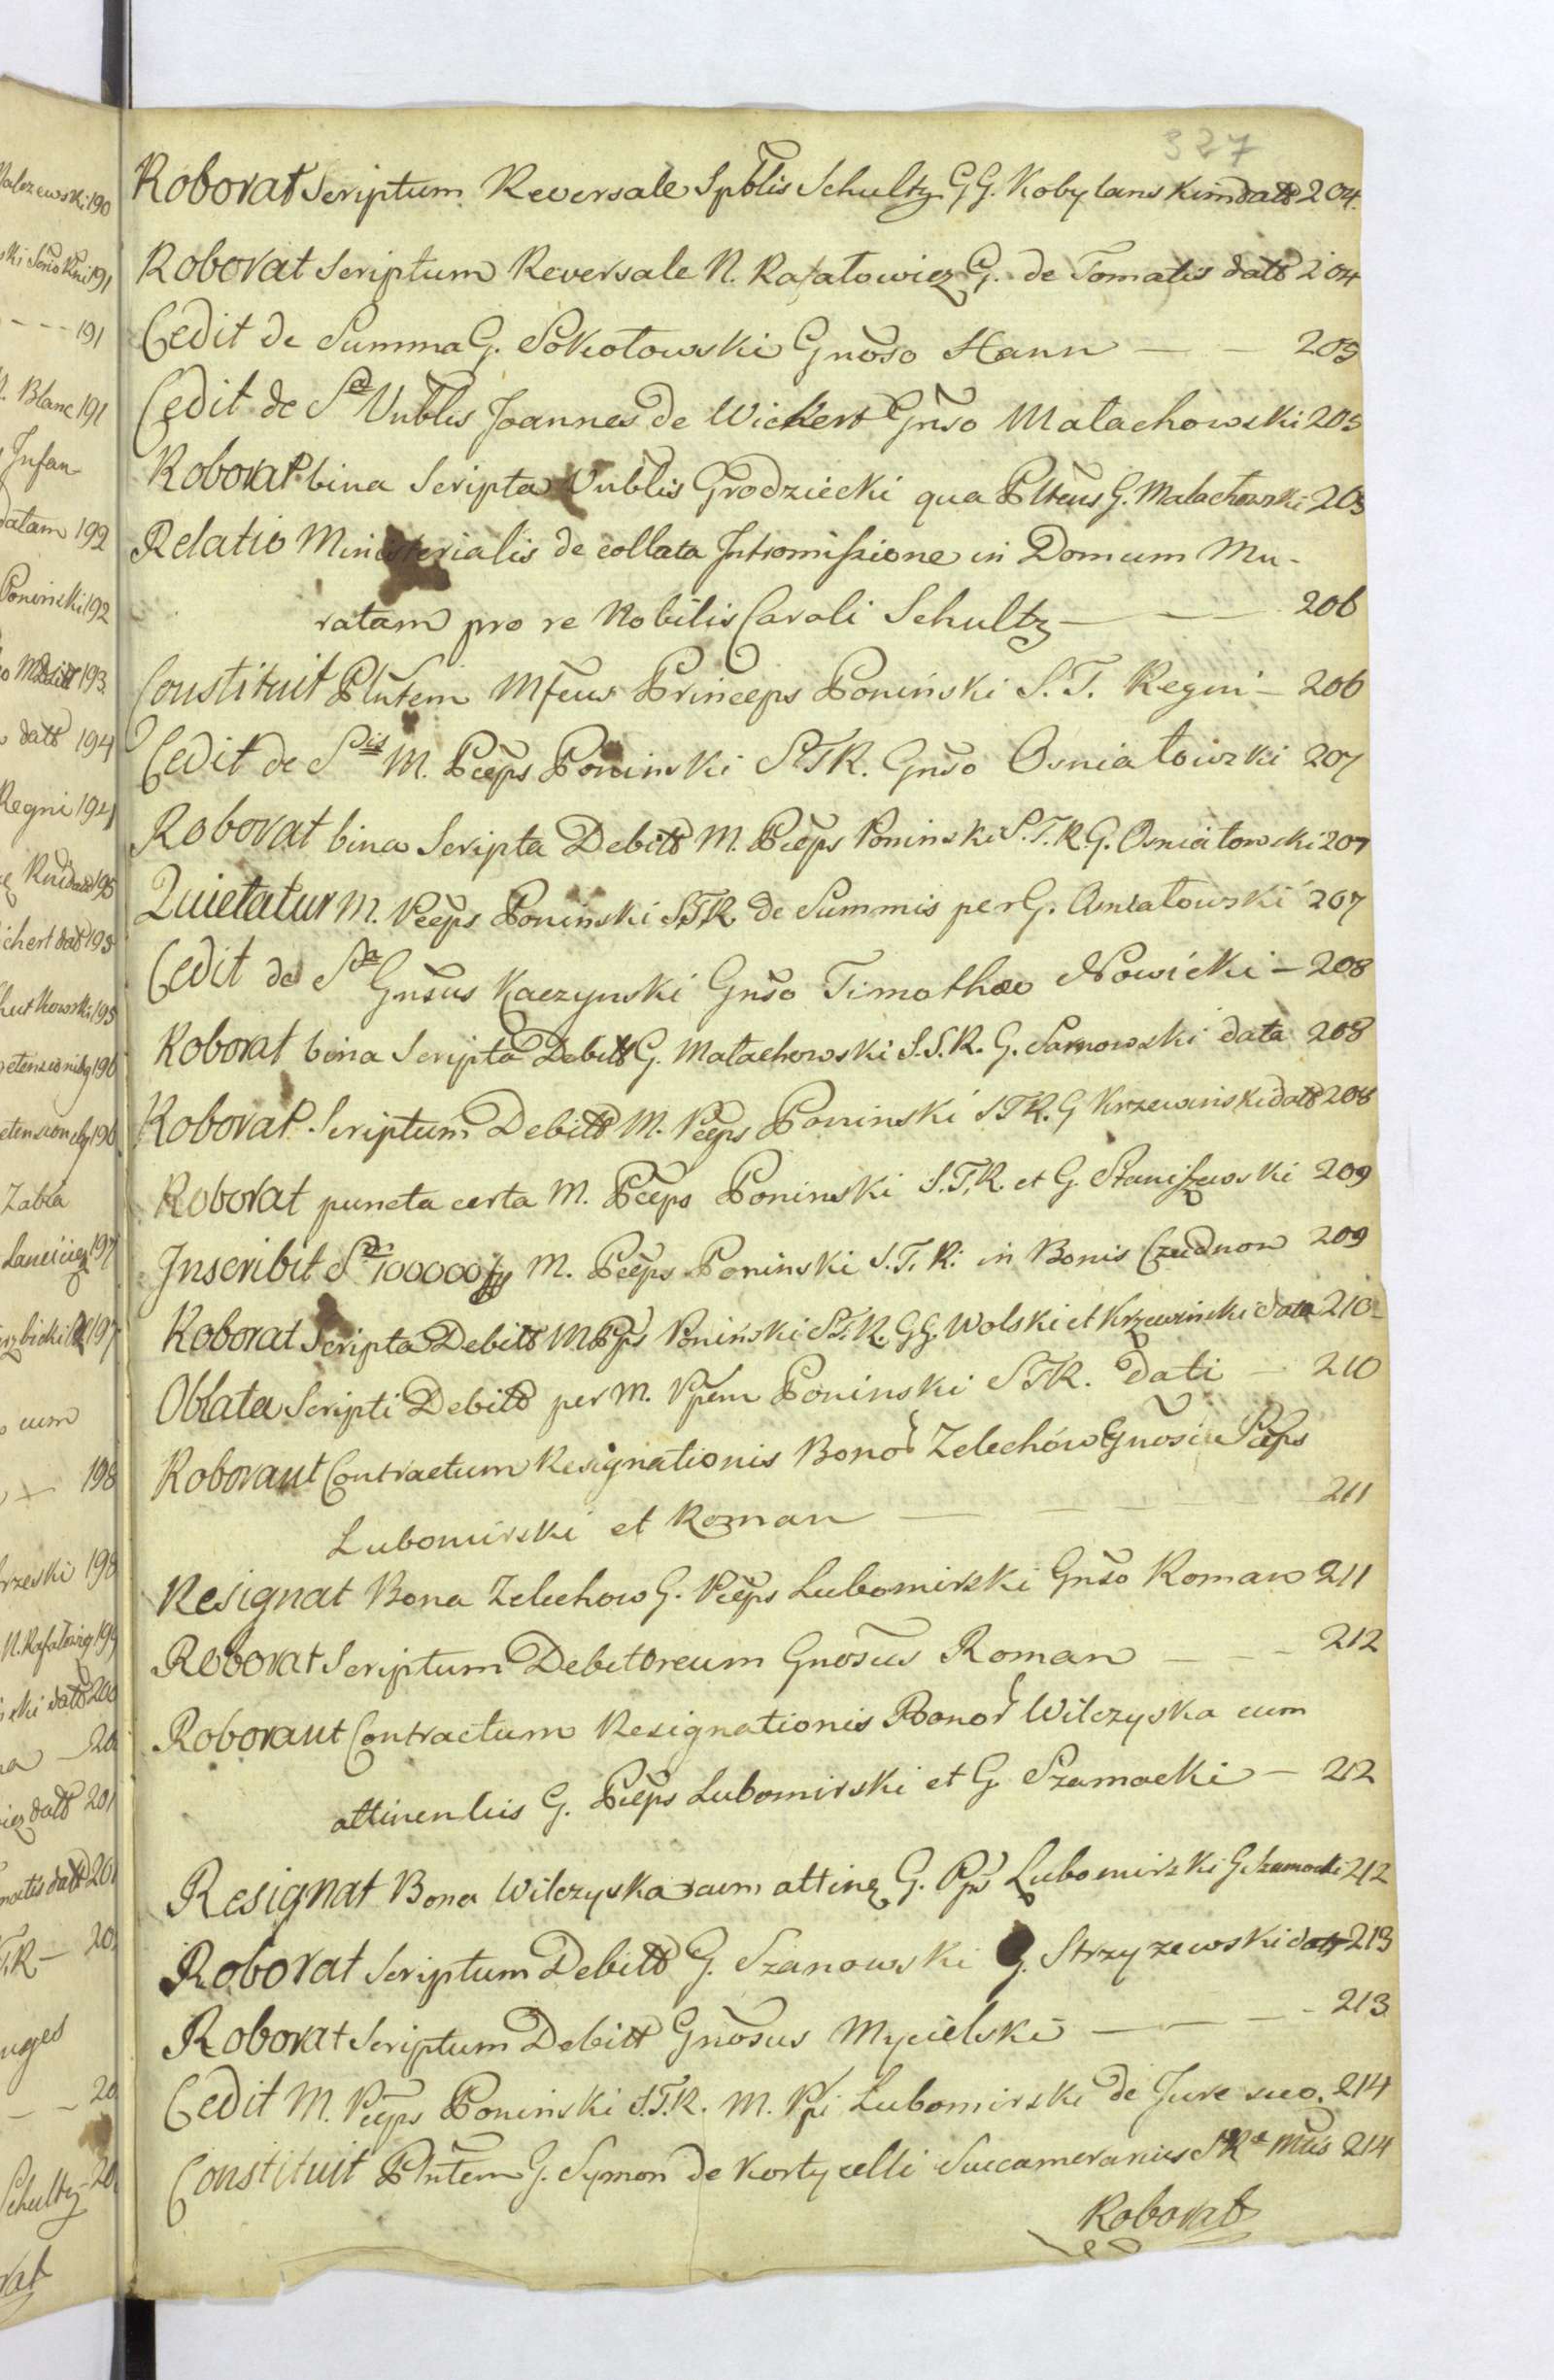 327
Roborat Scriptum Reversale Spblis Schultz GG. Kobylanskim datt 204.
Roborat Scriptum Reversale N. Rafałowicz G. de Tomatis datt 204
Cedit de Summa G. Sokołowski Gnoso Hann — — 205
Cedit de Sa Nublis Joannes de Wickert Gnso Małachowski 205
Roborat bina Scripta Nublis Grodziecki qua Plteus G. Małachowski 205
Relatio Ministerialis de collata Intromissione in Domum Mu-
ratam pro re Nobilis Caroli Schultz — — 206
Constituit Plntem Mfcus Princeps Poniński S. T. Regni — 206
Cedit de Sis M. Pceps Poninski STR. Gnso Osniałowski 207
Roborat bina Scripta Debitt M. Pceps Poninski S.T.R. G. Osniałowski 207
Quietatur M. Pceps Poninski STR de Summis per G. Osniałowski 207
Cedit de Sa Gnsus Kaczynski Gnso Timotheo Nowicki — 208
Roborat bina Scripta Debitt G. Małachowski S.S.R. G. Sarnowski data 208
Roborat Scriptum Debitt M. Pceps Poninski STR. G Krzewinski datt 208
Roborat puncta certa M. Pceps Poninski S.T.R. et G. Staniszewski 209
Inscribit Sam 100000 M. Pceps Poninski S.T.R. in Bonis Czudnow 209
Roborat Scripta Debitt M Pps Poniński STR. GG. Wolski et Krzewinski data 210
Oblata Scripti Debitt per M. Ppem Poninski STR. dati — 210
Roborant Contractum Resignationis Bonor Zelechów Gnosi Pceps
Lubomirski et Roman — — — 211
Resignat Bona Zelechow G. Pceps Lubomirski Gnso Roman 211
Roborat Scriptum Debitoreum Gnosus Roman — — — 212
Roborant Contractum Resignationis Bonor Wilczyska cum
attinentiis G. Pceps Lubomirski et G Szamocki — 212
Resignat Bona Wilczyska cum attinę G. Pps Lubomirski G. Szamocki 212
Roborat Scriptum Debitt G. Szanowski G. Strzyzewski datt 213
Roborat Scriptum Debitt Gnosus Mycielski — — — 213
Cedit M. Pceps Poninski S.T.R. M. Ppi Lubomirski de Jure suo. 214
Constituit Plntem G. Symon de Kortycelli Succameranius S Ra Mtis 214
Roborat